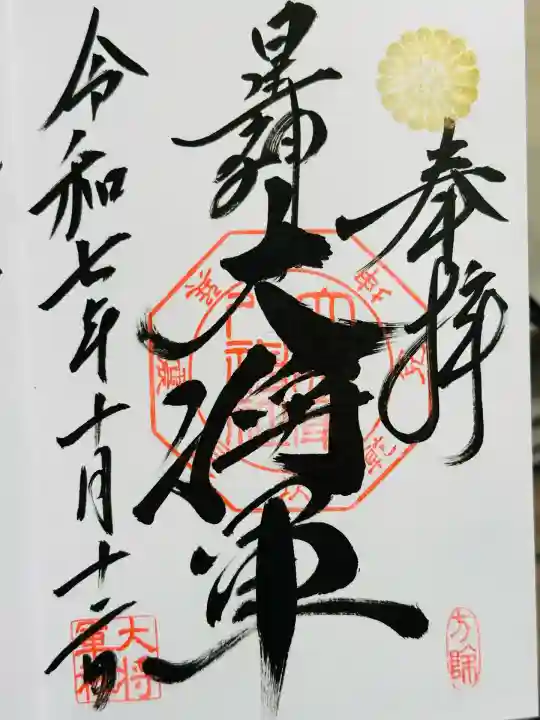 奉拝
星神
大将軍
令和七年十月十二日
方除
大将
軍